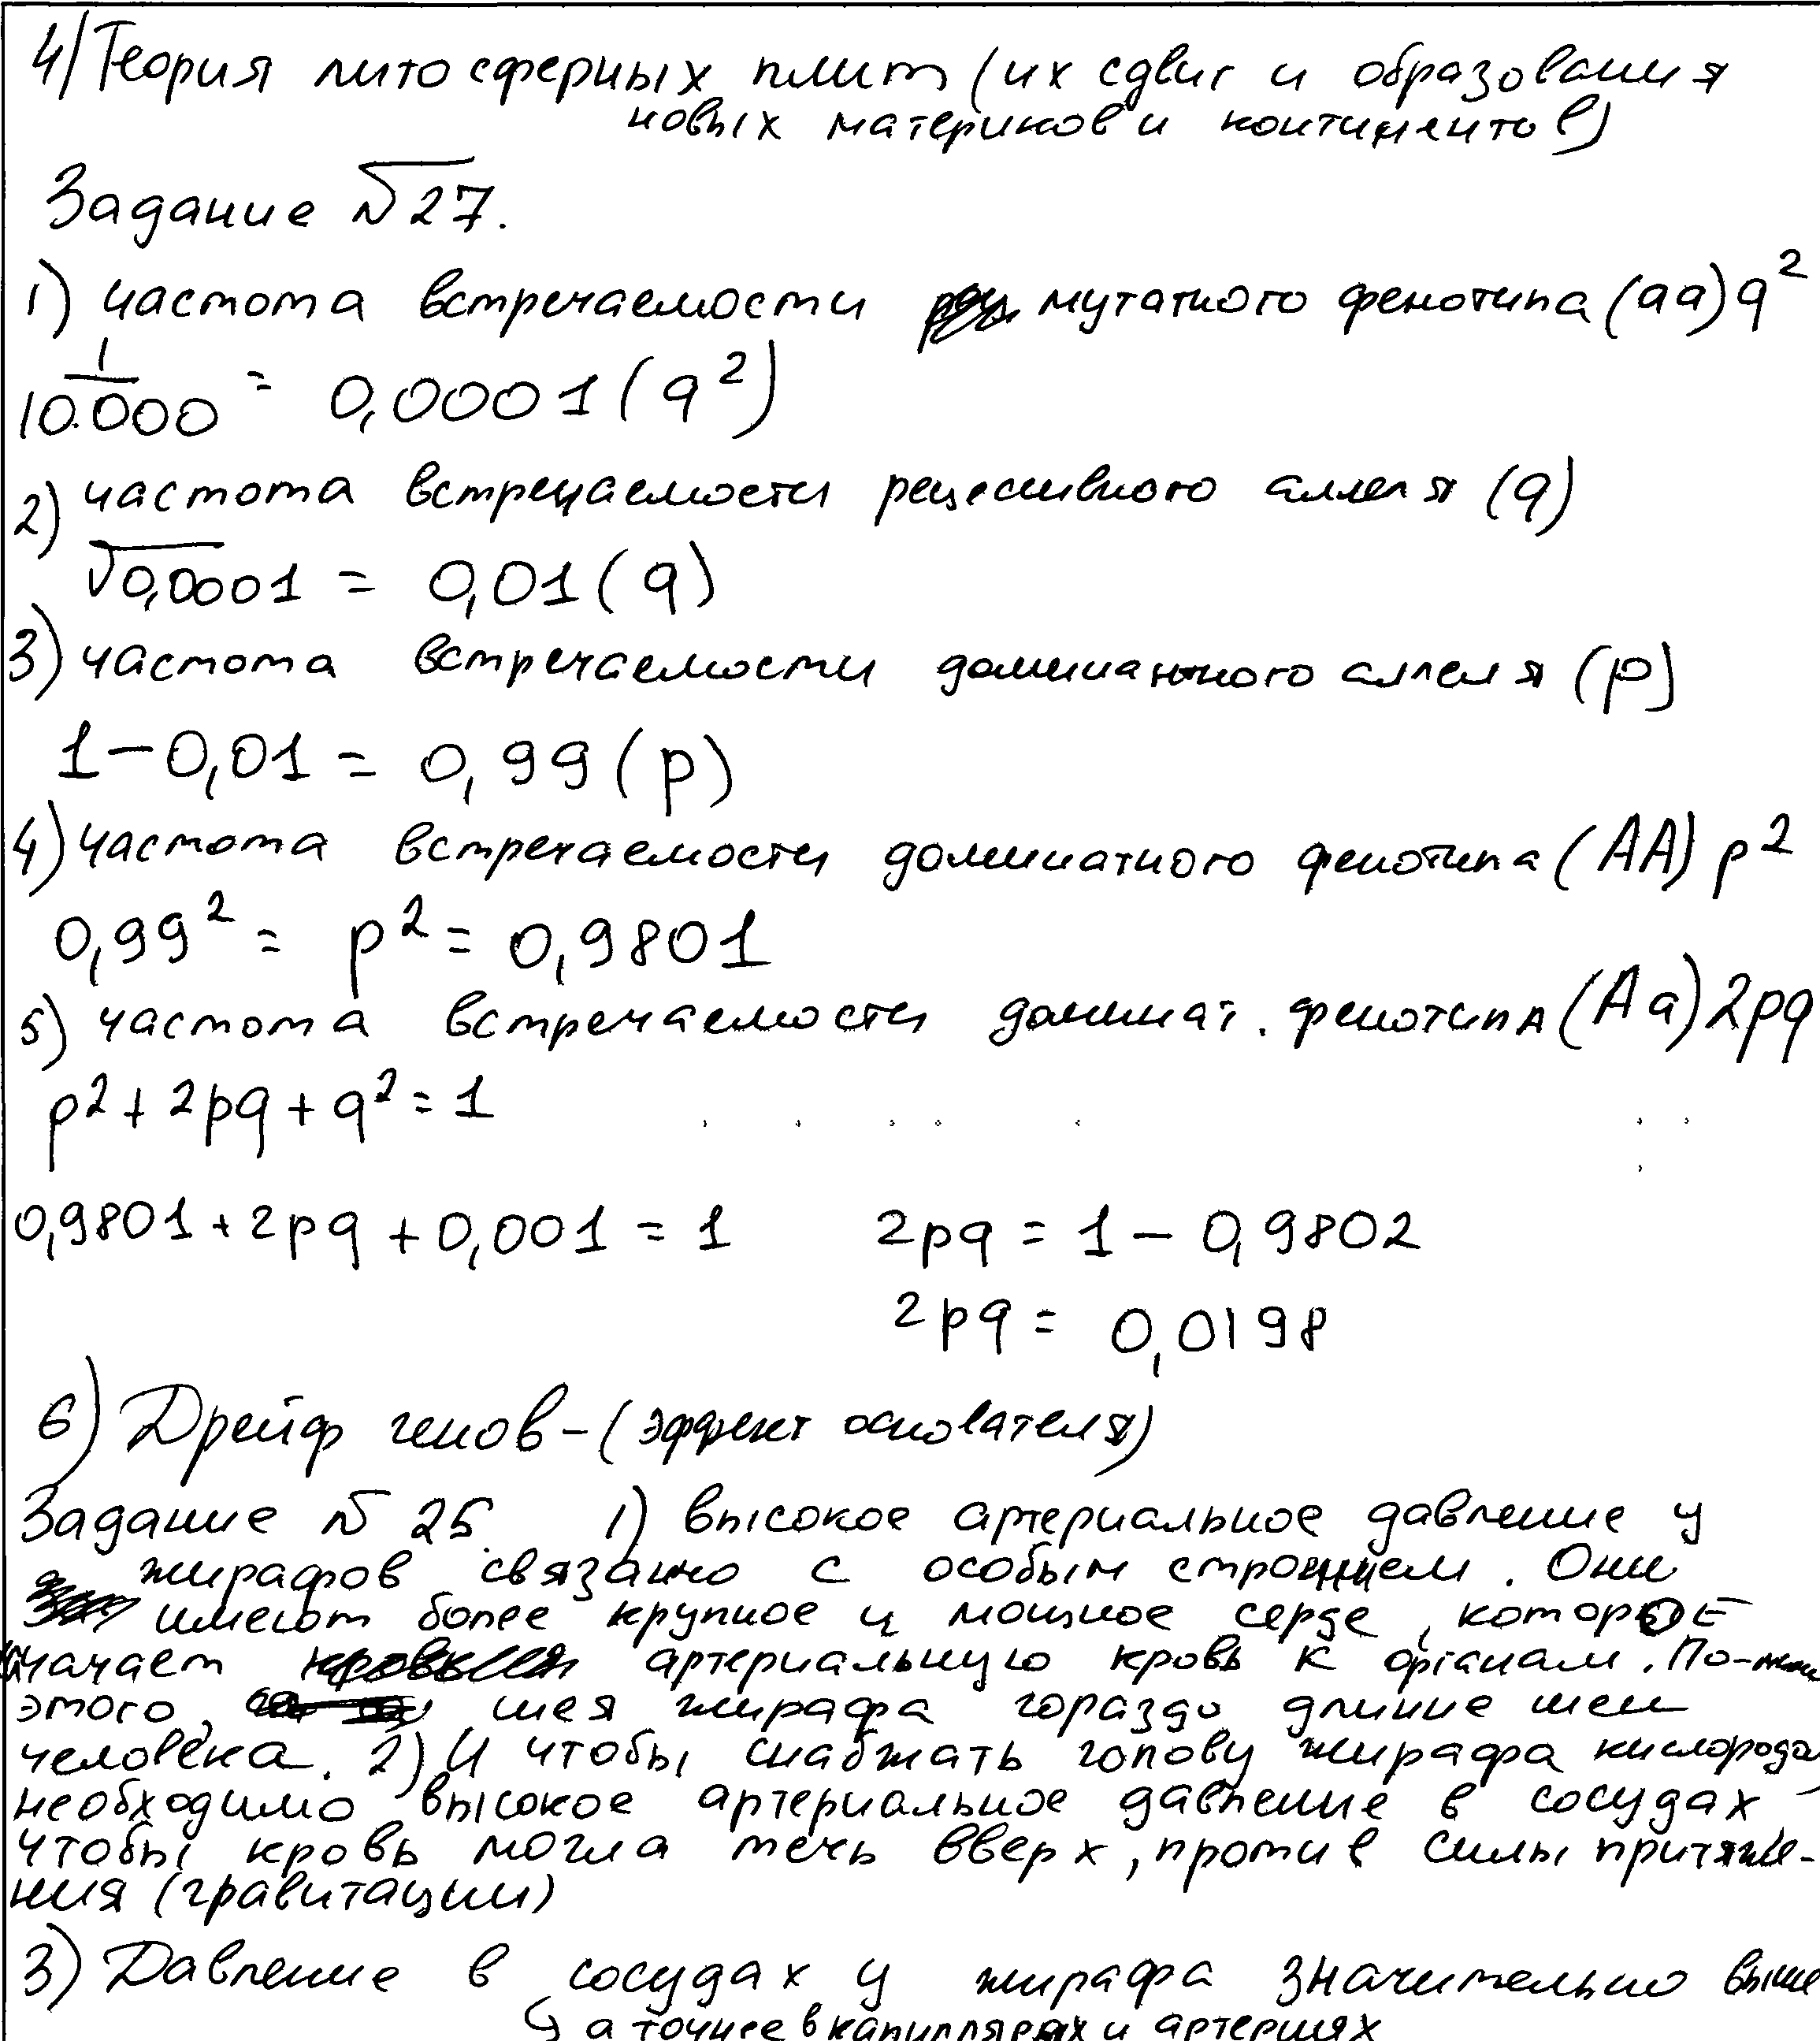 4) Теория литосферных плит (их сдвиг и образования
новых материков и континентов)
Задание №27.
1) частота встречаемости мутатного фенотипа (aa) q²
1/10.000 = 0,0001 (q²)
2) частота встречаемости рецесивного аллеля (q)
√0,0001 = 0,01 (q)
3) частота встречаемости доминантного аллеля (p)
1 – 0,01 = 0,99 (p)
4) частота встречаемости доминатного фенотипа (AA) p²
0,99² = p² = 0,9801
5) частота встречаемости доминат. фенотипа (Aa) 2pq
p² + 2pq + q² = 1
0,9801 + 2pq + 0,001 = 1 2pq = 1 – 0,9802
2pq = 0,0198
6) Дрейф генов – (эффект основателя)
Задание № 25. 1) высокое артериальное давление у
жирафов связанно с особым строением. Они
имеют более крупное и мощное серце, которое
качает артериальную кровь к органам. По-
этого, шея жирафа гораздо длинне шеи
человека. 2) И чтобы снабжать голову жирафа кислородом
необходимо высокое артериальное давление в сосудах
чтобы кровь могла течь вверх, против силы притяже-
ния (гравитации)
3) Давление в сосудах у жирафа значительно выше
а точнее в капиллярах и артериях